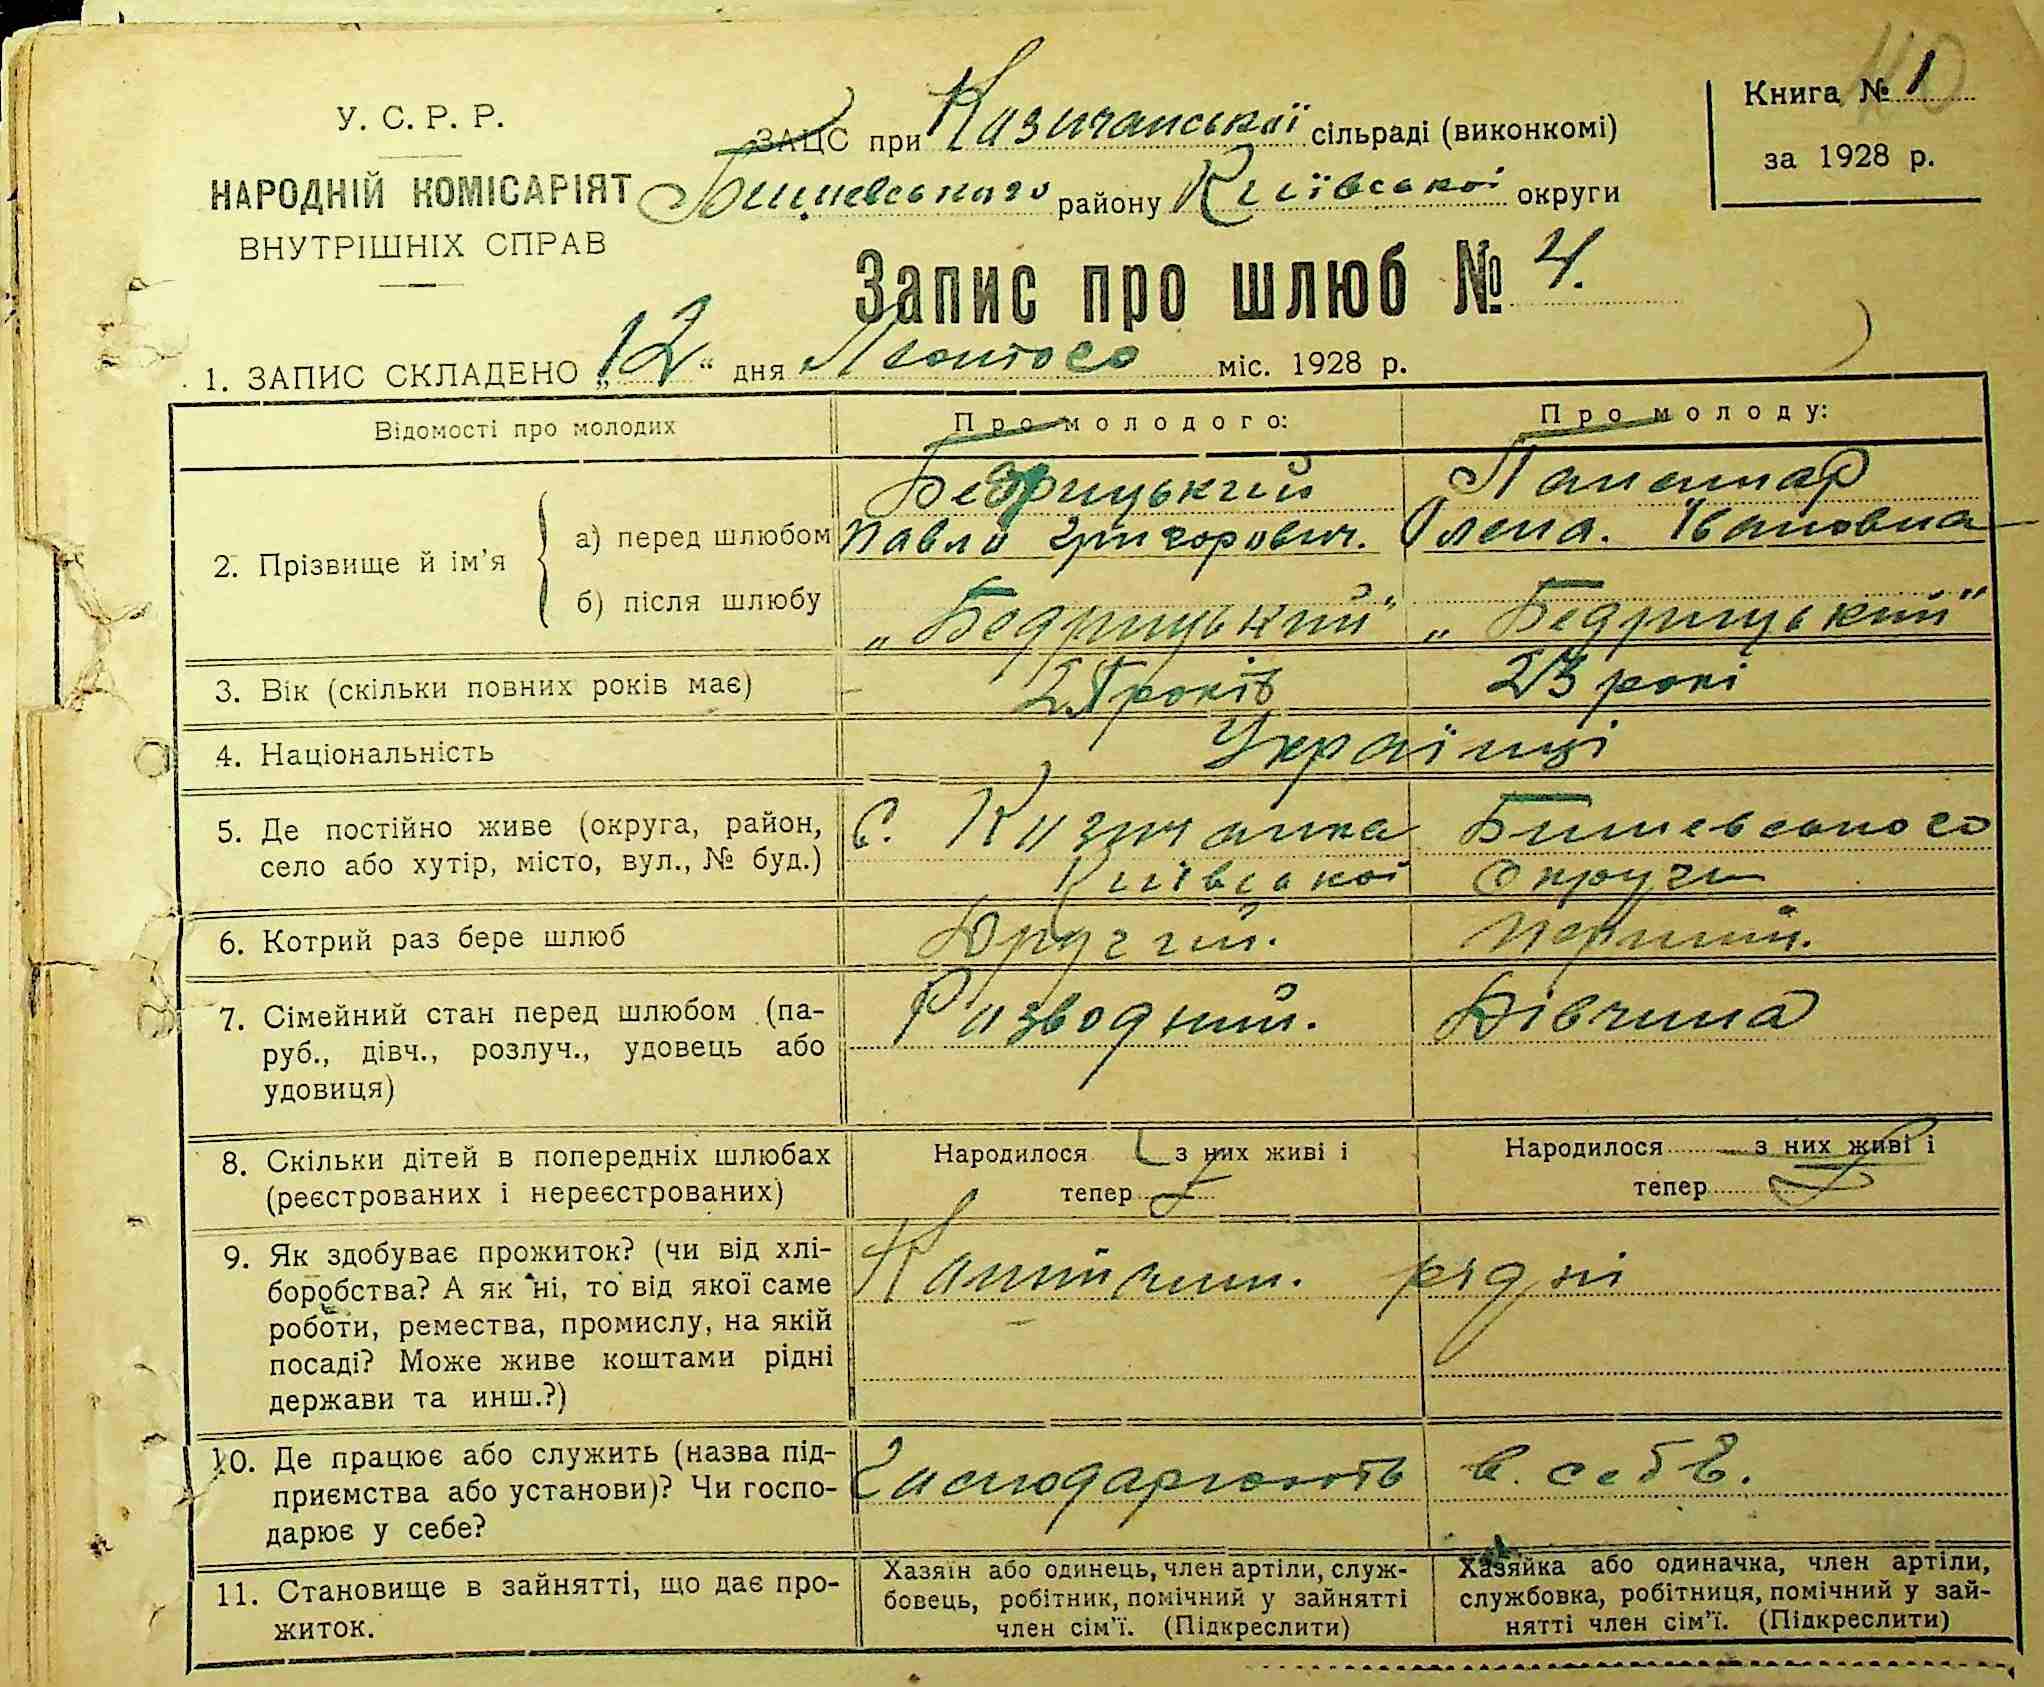 У. С. Р. Р.
НАРОДНІЙ КОМІСАРІЯТ
ВНУТРІШНІХ СПРАВ
ЗАЦС при Казичанської сільраді (виконкомі)
Бишевського району Київської округи
Книга № 1
за 1928 р.
Запис про шлюб № 4.
1. ЗАПИС СКЛАДЕНО „12“ дня Лютого міс. 1928 р.
Відомості про молодих
Про молодого:
Про молоду:
2. Прізвище й ім’я
а) перед шлюбом
Бедрицький
Павло Григорович.
Паламар
Олена. Івановна
б) після шлюбу
„Бедрицький“
„Бедрицький“
3. Вік (скільки повних років має)
років
23 рокі
4. Національність
Українці
5. Де постійно живе (округа, район,
село або хутір, місто, вул., № буд.)
с. Казичанка Бишевського
Київської Округи
6. Котрий раз бере шлюб
Другий.
Перший.
7. Сімейний стан перед шлюбом (па-
руб., дівч., розлуч., удовець або
удовиця)
Разводний.
Дівчина
8. Скільки дітей в попередніх шлюбах
(реєстрованих і нереєстрованих)
Народилося з них живі і
тепер
Народилося — з них живі і
тепер
9. Як здобуває прожиток? (чи від хлі-
боробства? А як ні, то від якої саме
роботи, ремества, промислу, на якій
посаді? Може живе коштами рідні
держави та инш.?)
рідні
10. Де працює або служить (назва під-
приємства або установи)? Чи госпо-
дарює у себе?
Гасподарюють в. себѣ.
11. Становище в зайнятті, що дає про-
житок.
Хазяїн або одинець, член артіли, служ-
бовець, робітник, помічний у зайнятті
член сім’ї. (Підкреслити)
Хазяйка або одиначка, член артіли,
службовка, робітниця, помічний у зай-
нятті член сім’ї. (Підкреслити)